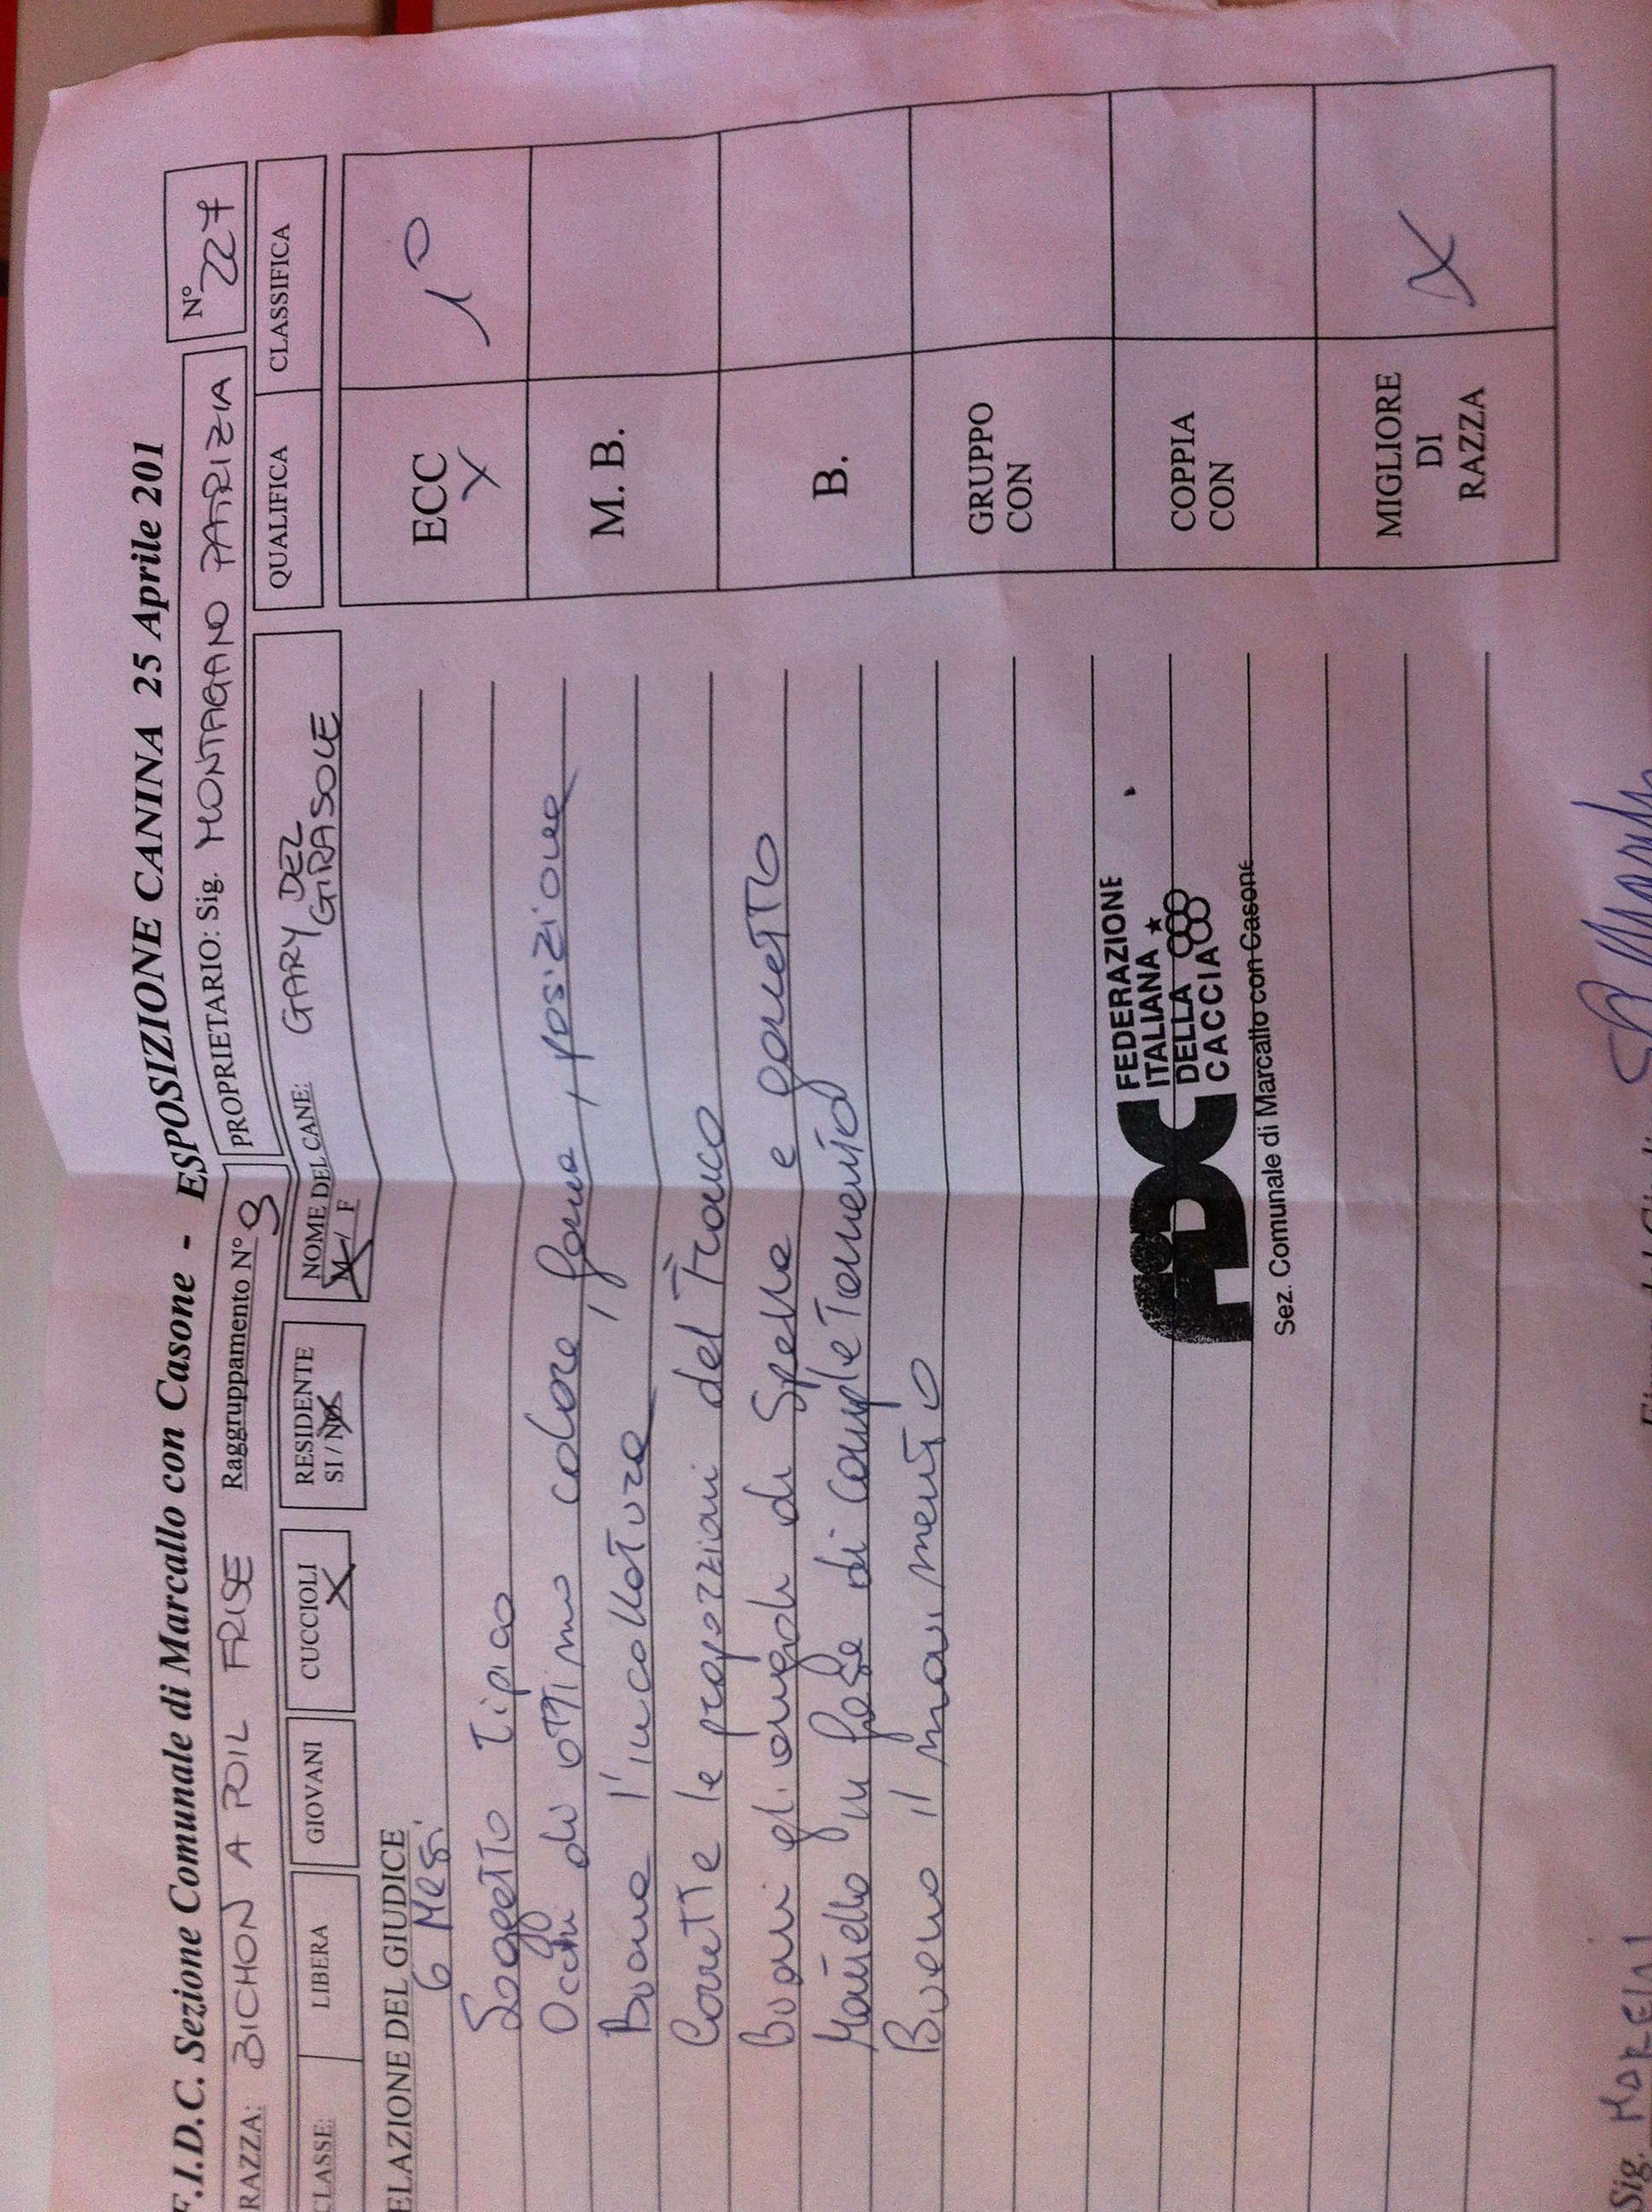 F.I.D.C. Sezione Comunale di Marcallo con Casone - ESPOSIZIONE CANINA 25 Aprile 201
RAZZA: BICHON A POIL FRISE Raggruppamento N° 9 PROPRIETARIO: Sig. MONTAGANO PATRIZIA N° 227
CLASSE: LIBERA GIOVANI CUCCIOLI X RESIDENTE SI / NO NOME DEL CANE: M / F GARY DEL GIRASOLE QUALIFICA CLASSIFICA
ELAZIONE DEL GIUDICE
6 MESI
Soggetto Tipico
Occhi di ottimo colore, forma, posizione
Buona l'incollatura
Corrette le proporzioni del Tronco
Buoni gli angoli di Spalla e garretto
Mantello in fase di completamento
Buono il movimento
ECC X 1°
M. B.
B.
GRUPPO CON
COPPIA CON
MIGLIORE DI RAZZA X
FIDC FEDERAZIONE
ITALIANA
DELLA
CACCIA
Sez. Comunale di Marcallo con Casone
Sig.